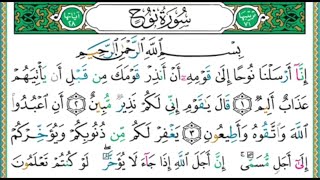 سُورَةُ نُوحٍ
بِسْمِ اللَّهِ الرَّحْمَٰنِ الرَّحِيمِ
إِنَّا أَرْسَلْنَا نُوحًا إِلَىٰ قَوْمِهِ أَنْ أَنْذِرْ قَوْمَكَ مِنْ قَبْلِ أَنْ يَأْتِيَهُمْ
عَذَابٌ أَلِيمٌ ١ قَالَ يَا قَوْمِ إِنِّي لَكُمْ نَذِيرٌ مُبِينٌ ٢ أَنِ اعْبُدُوا
اللَّهَ وَاتَّقُوهُ وَأَطِيعُونِ ٣ يَغْفِرْ لَكُمْ مِنْ ذُنُوبِكُمْ وَيُؤَخِّرْكُمْ
إِلَىٰ أَجَلٍ مُسَمًّى إِنَّ أَجَلَ اللَّهِ إِذَا جَاءَ لَا يُؤَخَّرُ لَوْ كُنْتُمْ تَعْلَمُونَ